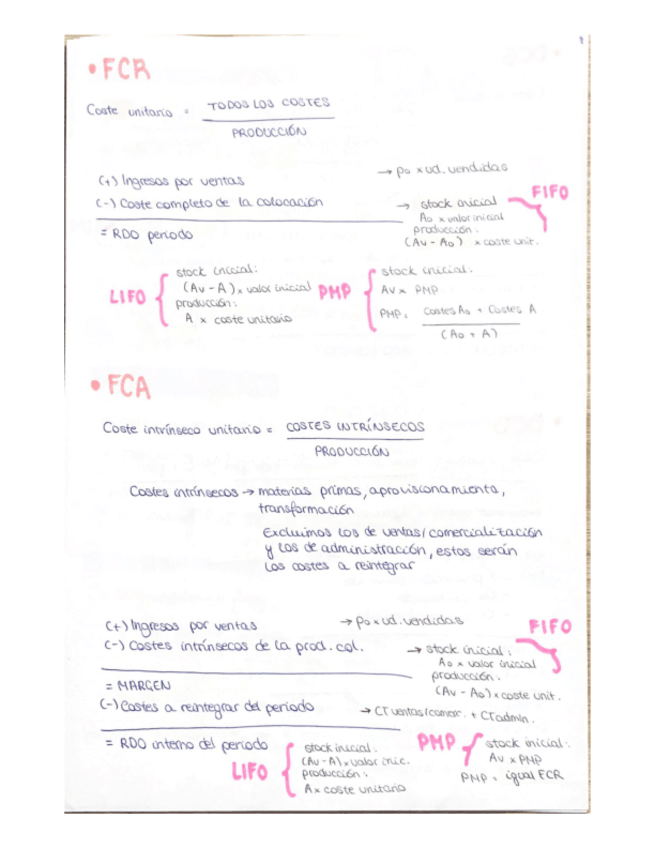 • FCR
Coste unitario = TODOS LOS COSTES
PRODUCCIÓN
→ po x ud. vendidas
(+) Ingresos por ventas
(-) Coste completo de la colocación
→ stock inicial FIFO
Ao x valor inicial
producción:
(Av - Ao) x coste unit.
= RDO periodo
LIFO
stock inicial:
(Av - A) x valor inicial
producción:
A x coste unitario
PMP
stock inicial:
Av x PMP
PMP = Costes Ao + Costes A
(Ao + A)
• FCA
Coste intrínseco unitario = COSTES INTRÍNSECOS
PRODUCCIÓN
Costes intrínsecos → materias primas, aprovisionamiento,
transformación
Excluimos los de ventas/comercialización
y los de administración, estos serán
los costes a reintegrar
(+) Ingresos por ventas → po x ud. vendidas
(-) Costes intrínsecos de la prod. col.
→ stock inicial: FIFO
Ao x valor inicial
producción:
(Av - Ao) x coste unit.
= MARGEN
(-) Costes a reintegrar del periodo → CT ventas/comer. + CT admin.
= RDO interno del periodo
LIFO
stock inicial:
(Av - A) x valor inic.
producción:
A x coste unitario
PMP
stock inicial:
Av x PMP
PMP = igual FCR